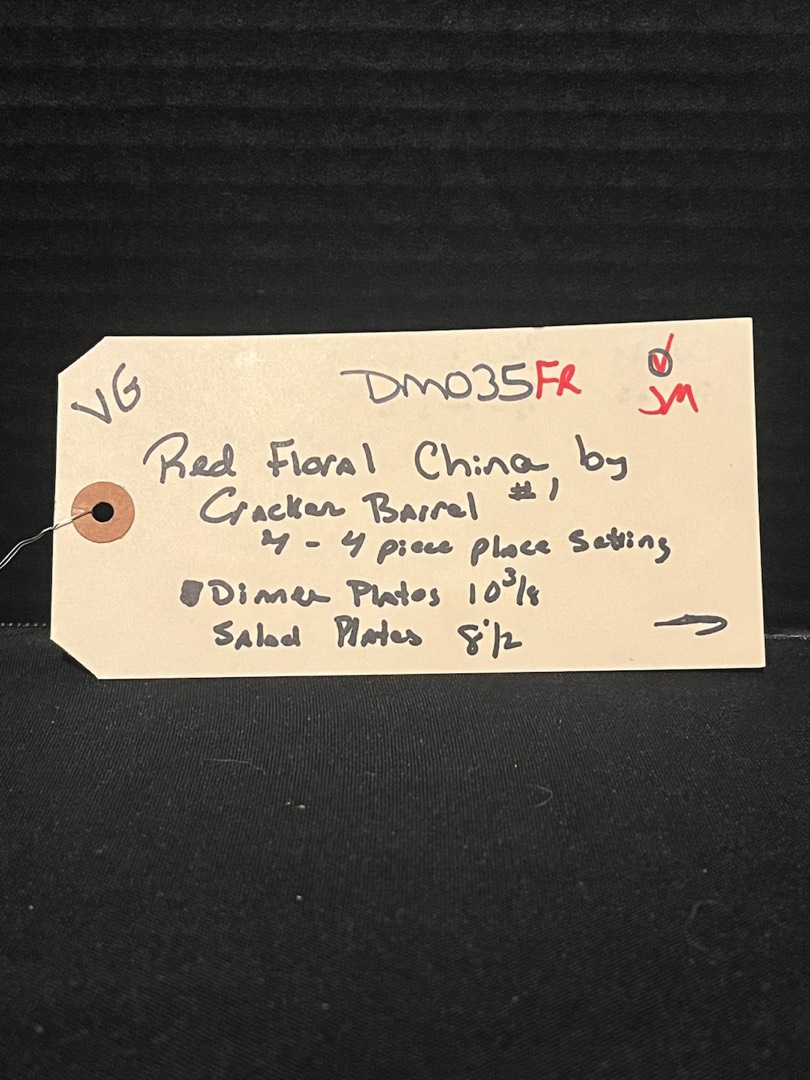 VG
DM035FR
JM
Red Floral China by
Cracker Barrel #1
4 - 4 piece place setting
Dinner Plates 10 3/8
Salad Plates 8 1/2